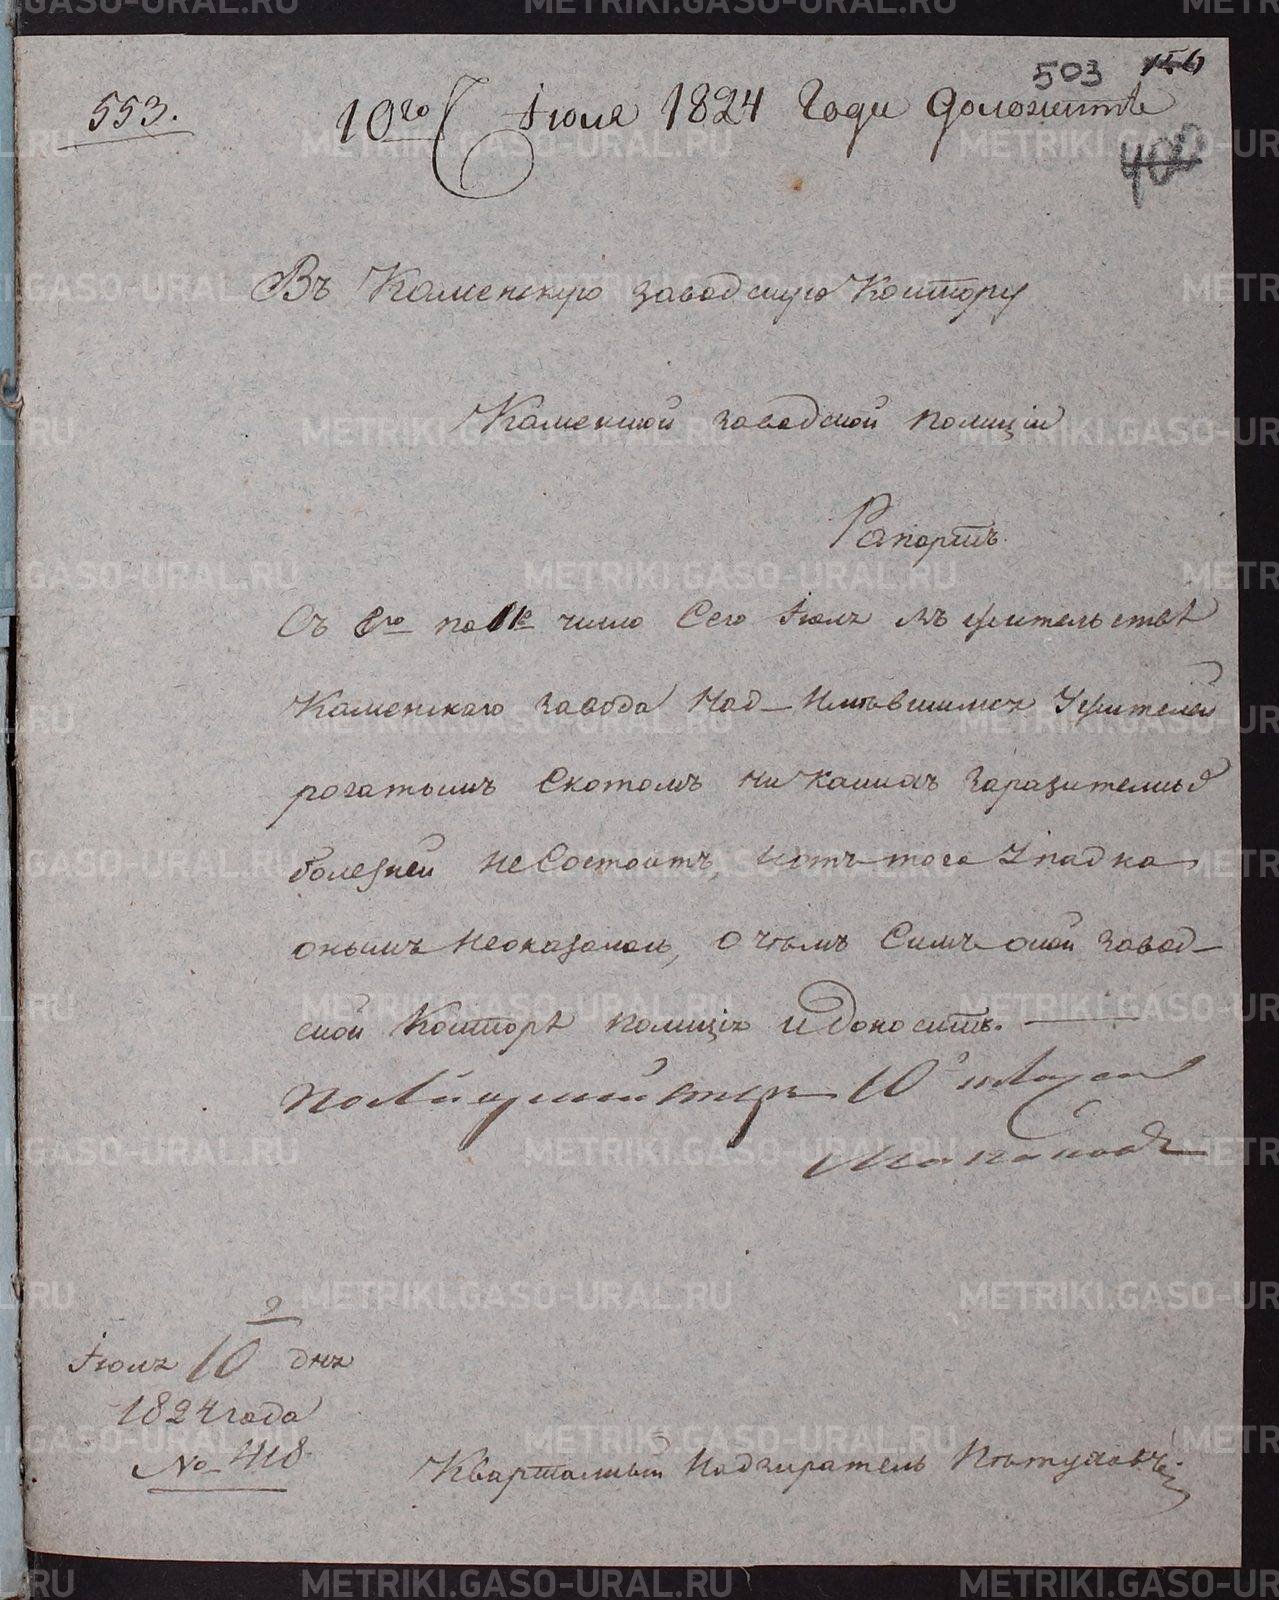 503
553.
10го Іюля 1824 Года Доложить
400
Въ Каменскую заводскую Контору
Каменской заводской полиціи
Рапортъ.
Съ по число Сего Іюля въ жительствѣ
Каменскаго завода Над Имѣвшимся У жителей
рогатымъ Скотомъ ни какихъ заразителныхъ
болезней не Состоитъ, и отъ того Упадка
онымъ неоказалось, о чѣмъ Симъ оной завод-
ской Конторѣ полиція и доноситъ.
Полицмейстер 10 класса
Іюля 10 дня
1824 года
№ 418
Квартальный Надзиратель Пѣтуховъ
METRIKI.GASO-URAL.RU